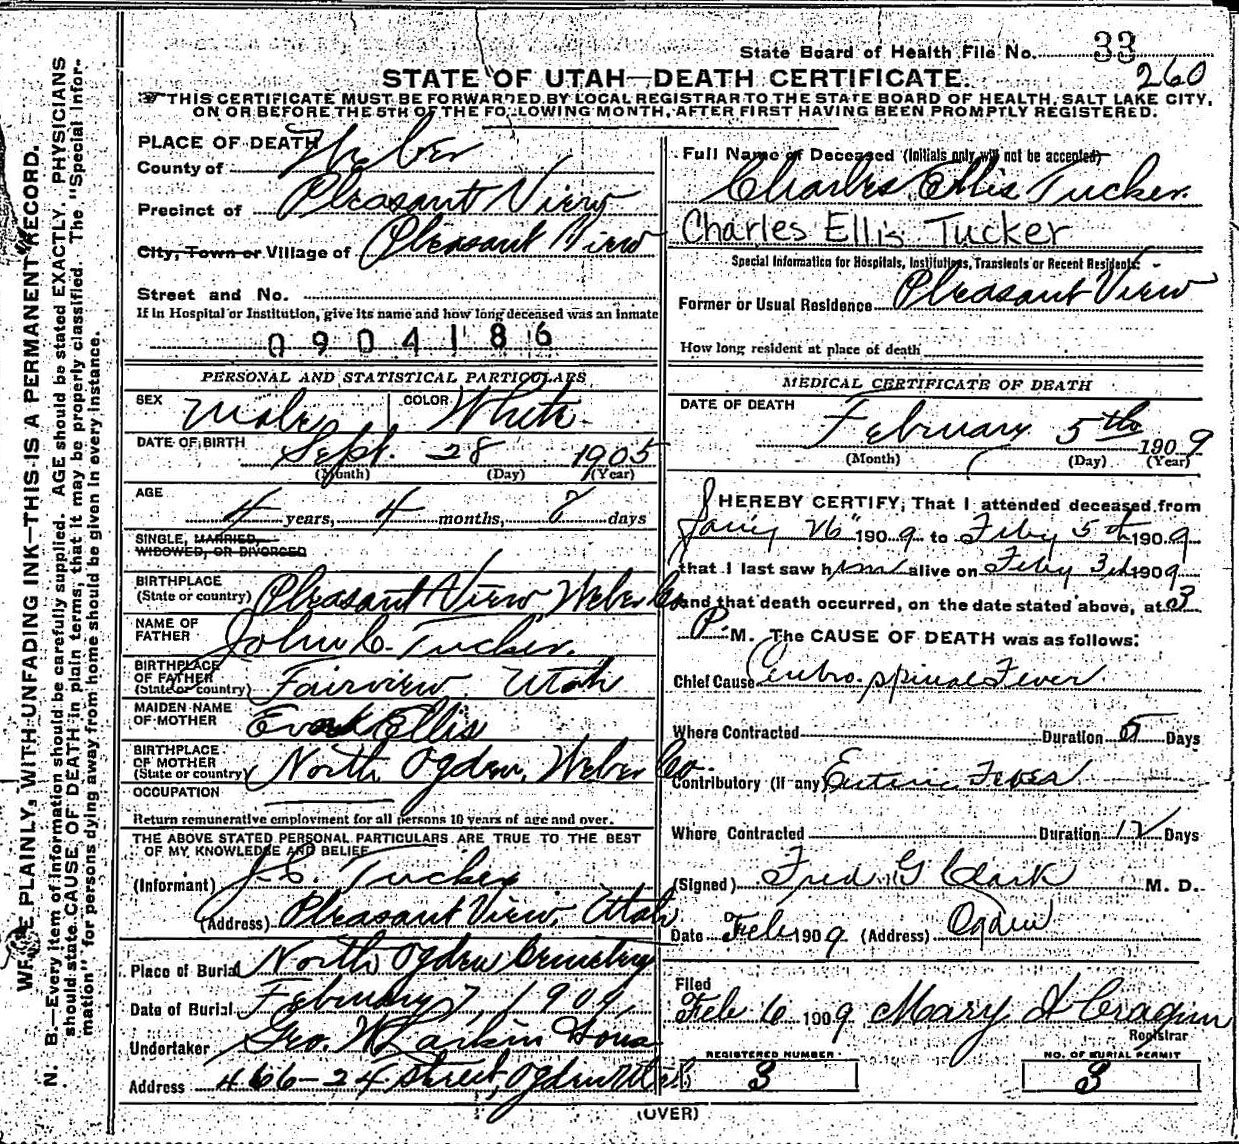 State Board of Health File No. 33
260
STATE OF UTAH—DEATH CERTIFICATE.
THIS CERTIFICATE MUST BE FORWARDED BY LOCAL REGISTRAR TO THE STATE BOARD OF HEALTH, SALT LAKE CITY,
ON OR BEFORE THE 5TH OF THE FOLLOWING MONTH, AFTER FIRST HAVING BEEN PROMPTLY REGISTERED.
PLACE OF DEATH
County of Weber
Precinct of Pleasant View
City, Town or Village of Pleasant View
Street and No.
If in Hospital or Institution, give its name and how long deceased was an inmate
0904186
PERSONAL AND STATISTICAL PARTICULARS
SEX Male COLOR White
DATE OF BIRTH Sept. 28 1905
(Month) (Day) (Year)
AGE
4 years, 4 months, 8 days
SINGLE, MARRIED,
WIDOWED, OR DIVORCED
BIRTHPLACE
(State or country) Pleasant View Weber Co
NAME OF
FATHER John C. Tucker.
BIRTHPLACE
OF FATHER
(State or country) Fairview Utah
MAIDEN NAME
OF MOTHER Ellis
BIRTHPLACE
OF MOTHER
(State or country) North Ogden, Weber Co.
OCCUPATION
Return remunerative employment for all persons 10 years of age and over.
THE ABOVE STATED PERSONAL PARTICULARS ARE TRUE TO THE BEST
OF MY KNOWLEDGE AND BELIEF
(Informant) J. C. Tucker
(Address) Pleasant View, Utah
Place of Burial North Ogden Cemetery
Date of Burial February 7, 1909
Undertaker Geo. W Larkin Sons
Address 466-24 Street, Ogden Utah
Full Name of Deceased (Initials only will not be accepted)
Charles Ellis Tucker.
Charles Ellis Tucker
Special Information for Hospitals, Institutions, Transients or Recent Residents:
Former or Usual Residence Pleasant View
How long resident at place of death
MEDICAL CERTIFICATE OF DEATH
DATE OF DEATH
February 5th 1909
(Month) (Day) (Year)
I HEREBY CERTIFY, That I attended deceased from
Jany 26" 1909 to Feby 5th 1909
that I last saw him alive on Feby 3rd 1909
and that death occurred, on the date stated above, at 3
P. M. The CAUSE OF DEATH was as follows:
Chief Cause Cerebro-spinal Fever
Where Contracted Duration 5 Days
Contributory (if any) Enteric Fever
Where Contracted Duration 12 Days
(Signed) Fred G Clark M. D.
Date Feb 1909 (Address) Ogden
Filed
Feb 6 1909 Mary
Registrar
REGISTERED NUMBER
3
NO. OF BURIAL PERMIT
3
(OVER)
WRITE PLAINLY, WITH UNFADING INK—THIS IS A PERMANENT RECORD.
N. B.—Every item of information should be carefully supplied. AGE should be stated EXACTLY. PHYSICIANS
should state CAUSE OF DEATH in plain terms, that it may be properly classified. The "Special Infor-
mation" for persons dying away from home should be given in every instance.